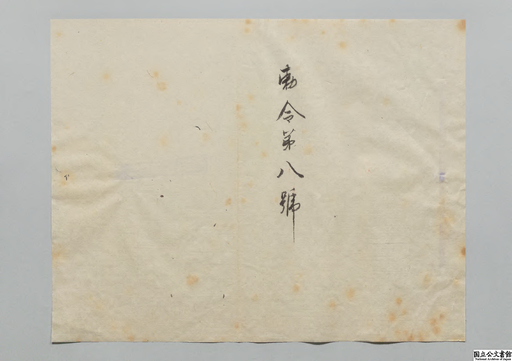 勅令第八號
国立公文書館
National Archives of Japan